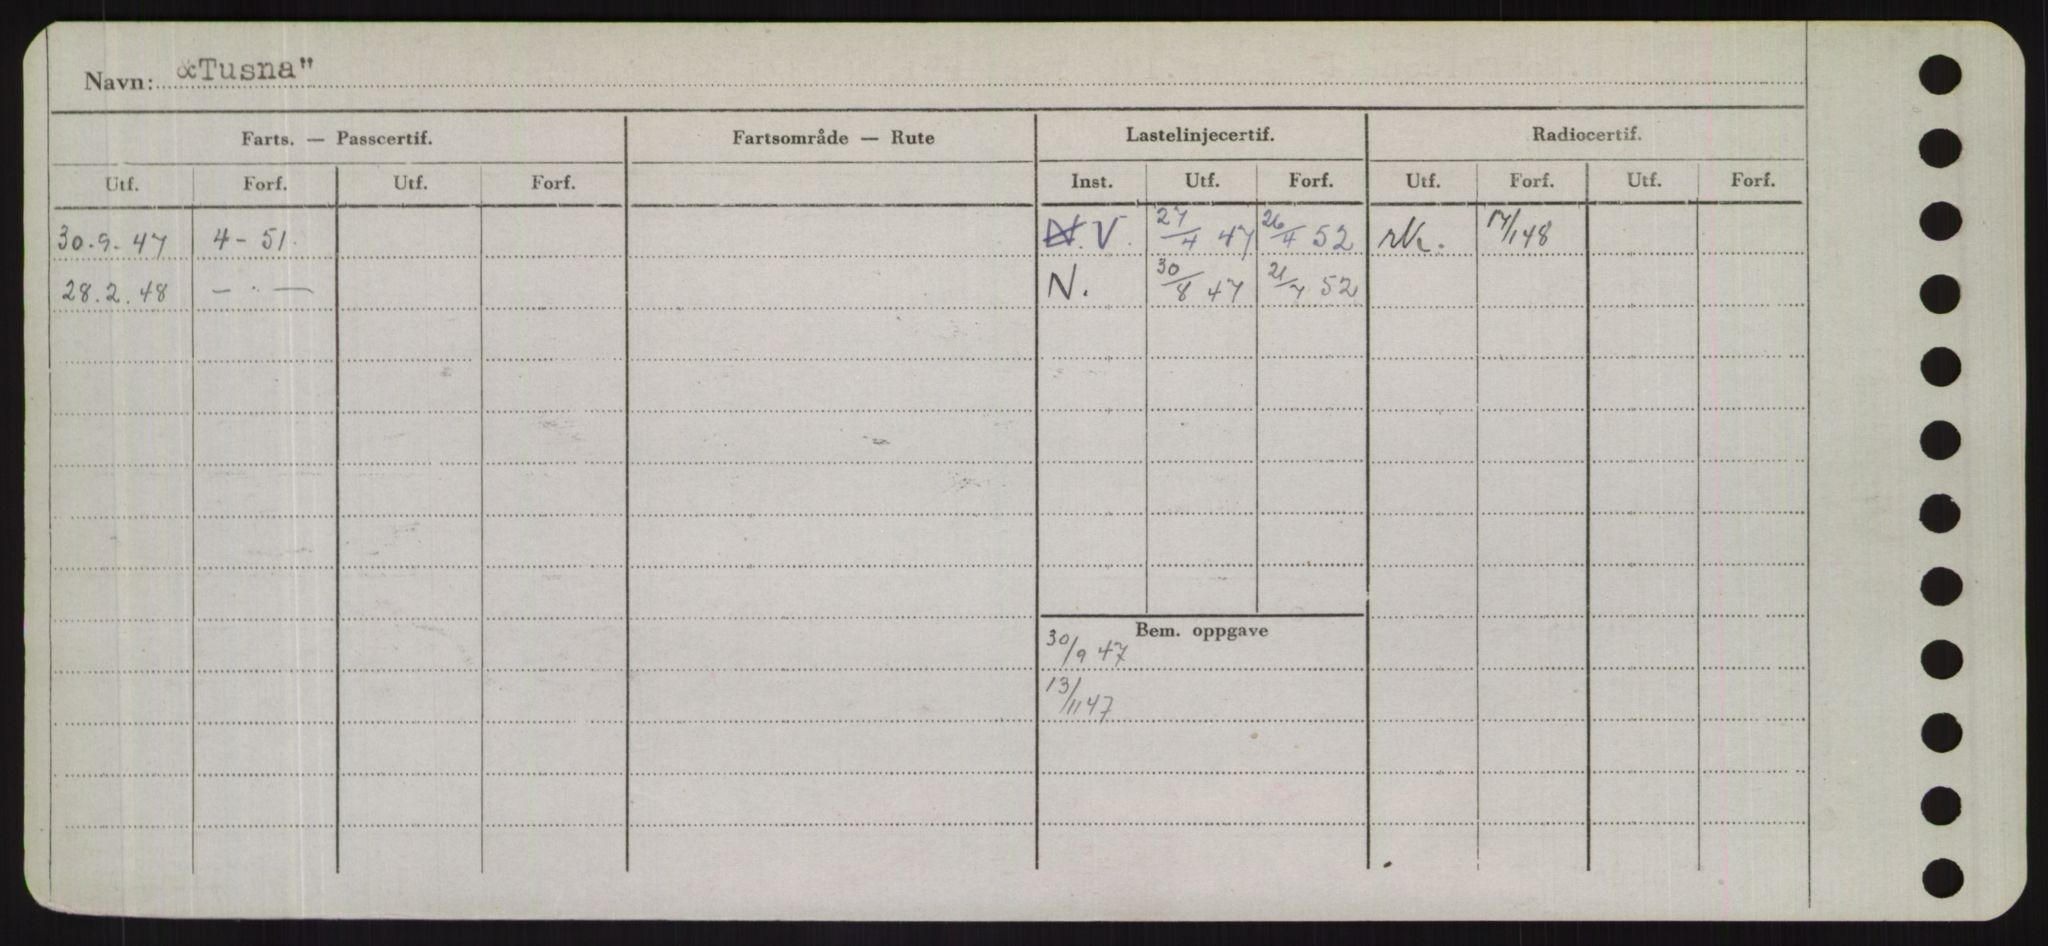 Navn: &Tusna"
Farts. — Passcertif. Fartsområde — Rute Lastelinjecertif. Radiocertif.
Utf. Forf. Utf. Forf. Inst. Utf. Forf. Utf. Forf. Utf. Forf.
30.9.47 4-51. V. 27/4 47 26/4 52 17/1 48
28.2.48 — . — N. 30/8 47 21/7 52
Bem. oppgave
30/9 47
13/11 47